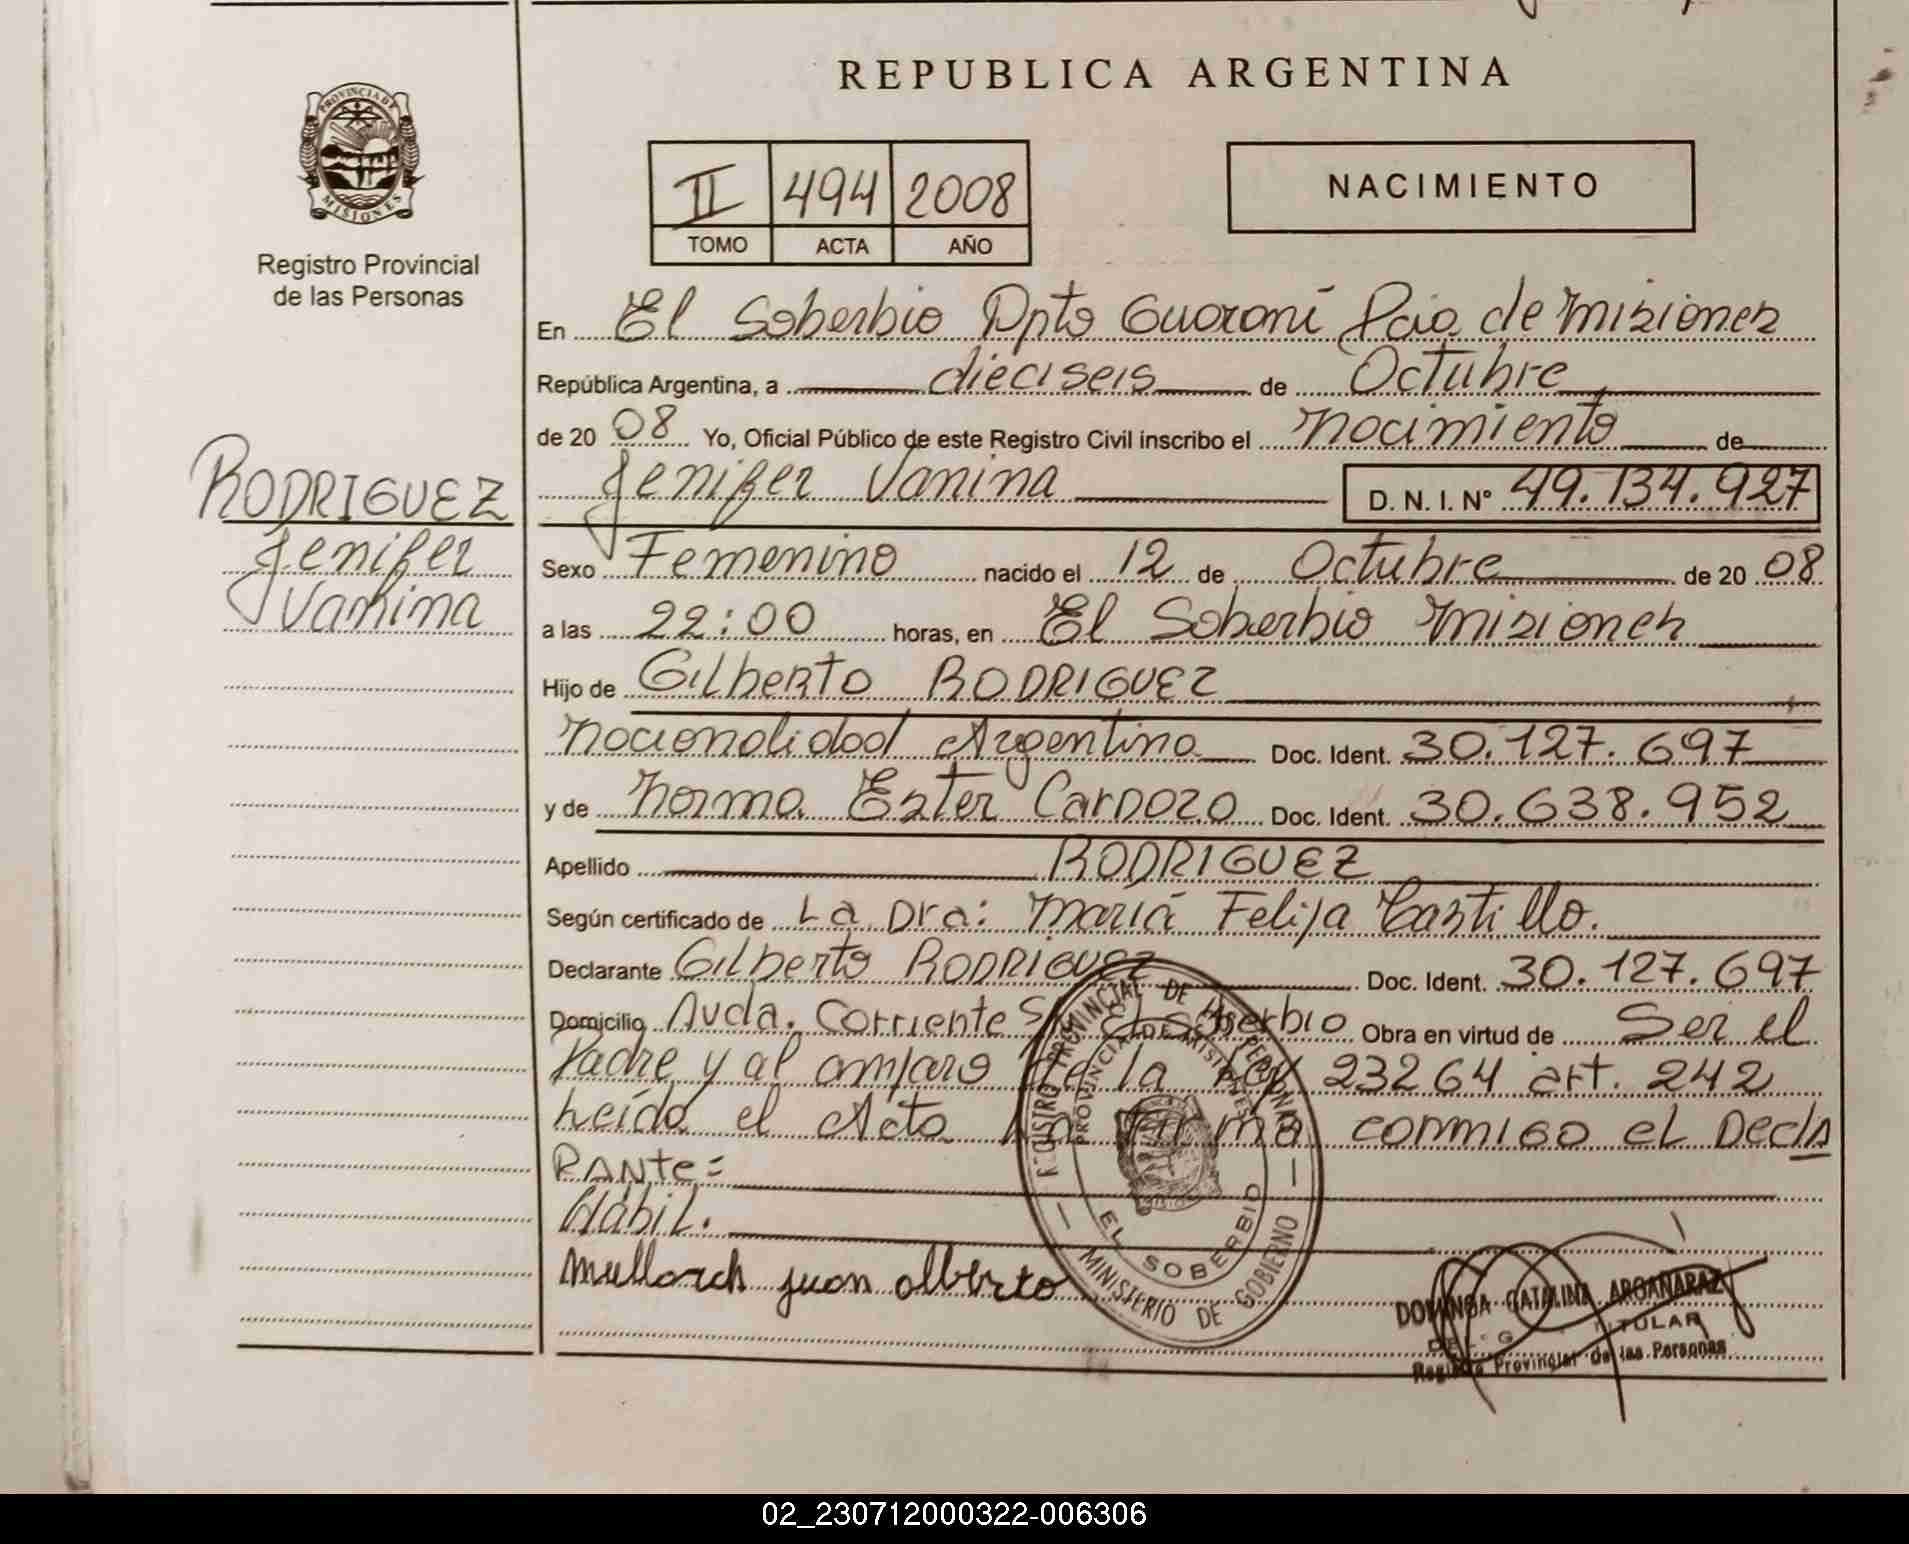 REPUBLICA ARGENTINA
PROVINCIA DE MISIONES
Registro Provincial
de las Personas
II 494 2008
TOMO ACTA AÑO
NACIMIENTO
En El Soberbio Dpto Guaraní Pcia. de Misiones
República Argentina, a dieciseis de Octubre
de 20 08 Yo, Oficial Público de este Registro Civil inscribo el Nacimiento de
Jenifer Vanina D. N. I. N° 49.134.927
RODRIGUEZ
Jenifer
Vanina
Sexo Femenino nacido el 12 de Octubre de 20 08
a las 22:00 horas, en El Soberbio Misiones
Hijo de Gilberto RODRIGUEZ
Nacionalidad Argentina Doc. Ident. 30.127.697
y de Norma Ester Cardozo Doc. Ident. 30.638.952
Apellido RODRIGUEZ
Según certificado de La Dra: María Felisa Castillo.
Declarante Gilberto RODRIGUEZ Doc. Ident. 30.127.697
Domicilio Avda. Corrientes El Soberbio Obra en virtud de Ser el
Padre y al amparo de la Ley 23264 art. 242
Leída el Acta la firma conmigo el Decla
rante=
Hábil.
Mullarch juan alberto
REGISTRO PROVINCIAL DE LAS PERSONAS
PROVINCIA DE MISIONES
EL SOBERBIO
MINISTERIO DE GOBIERNO
DOMINGA CATALINA ARGAÑARAZ
TITULAR
Registro Provincial de las Personas
02_230712000322-006306